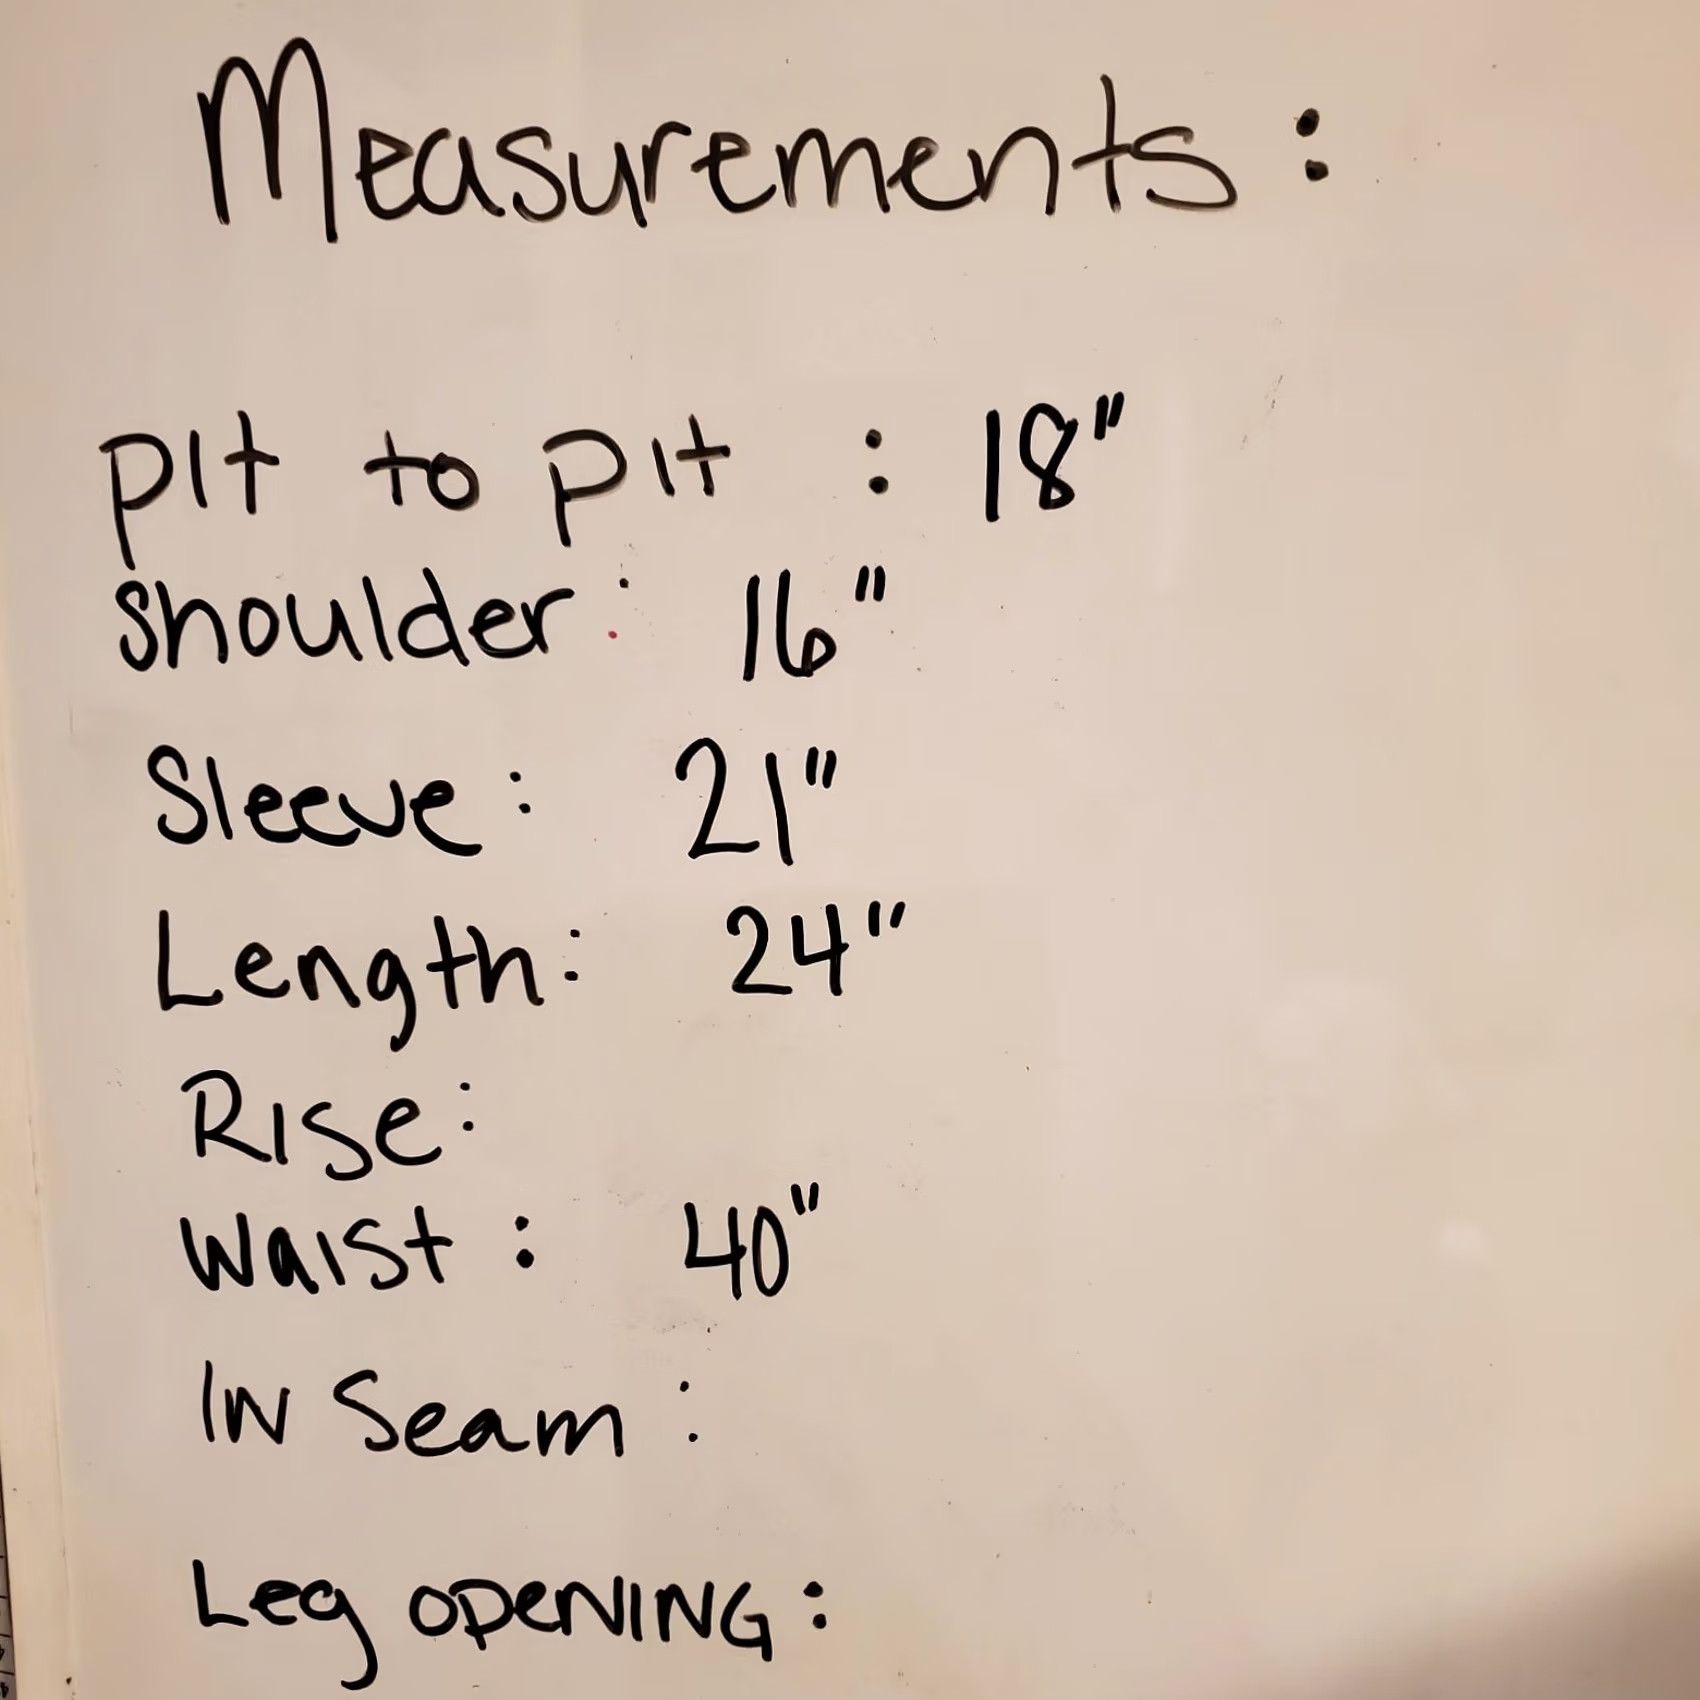 Measurements:
pit to pit : 18"
shoulder: 16"
Sleeve: 21"
Length: 24"
Rise:
Waist: 40"
IN Seam:
Leg OPENING: